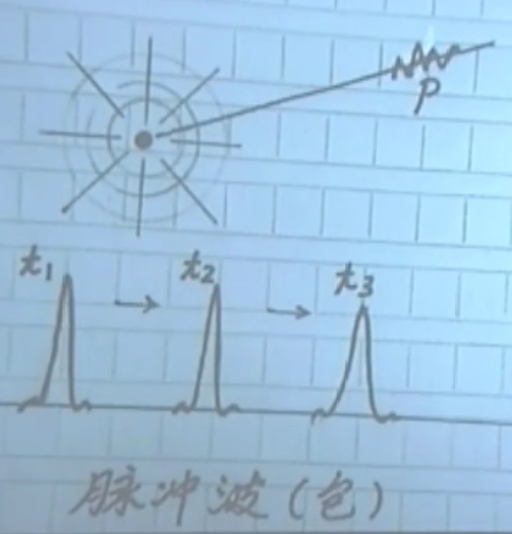 P
t₁ t₂ t₃
脉冲波(包)